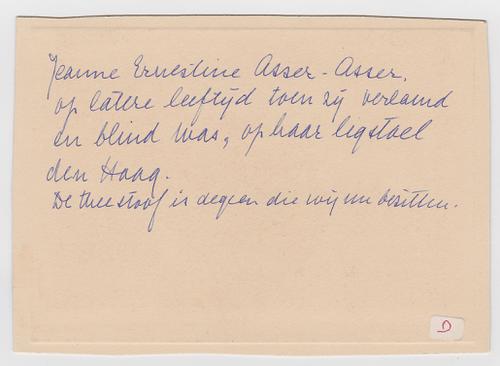 Jeanne Ernestine Asser-Asser,
op latere leeftijd toen zij verlamd
en blind was, op haar ligstoel
den Haag.
De theestoof is degeen die wij nu bezitten.
D